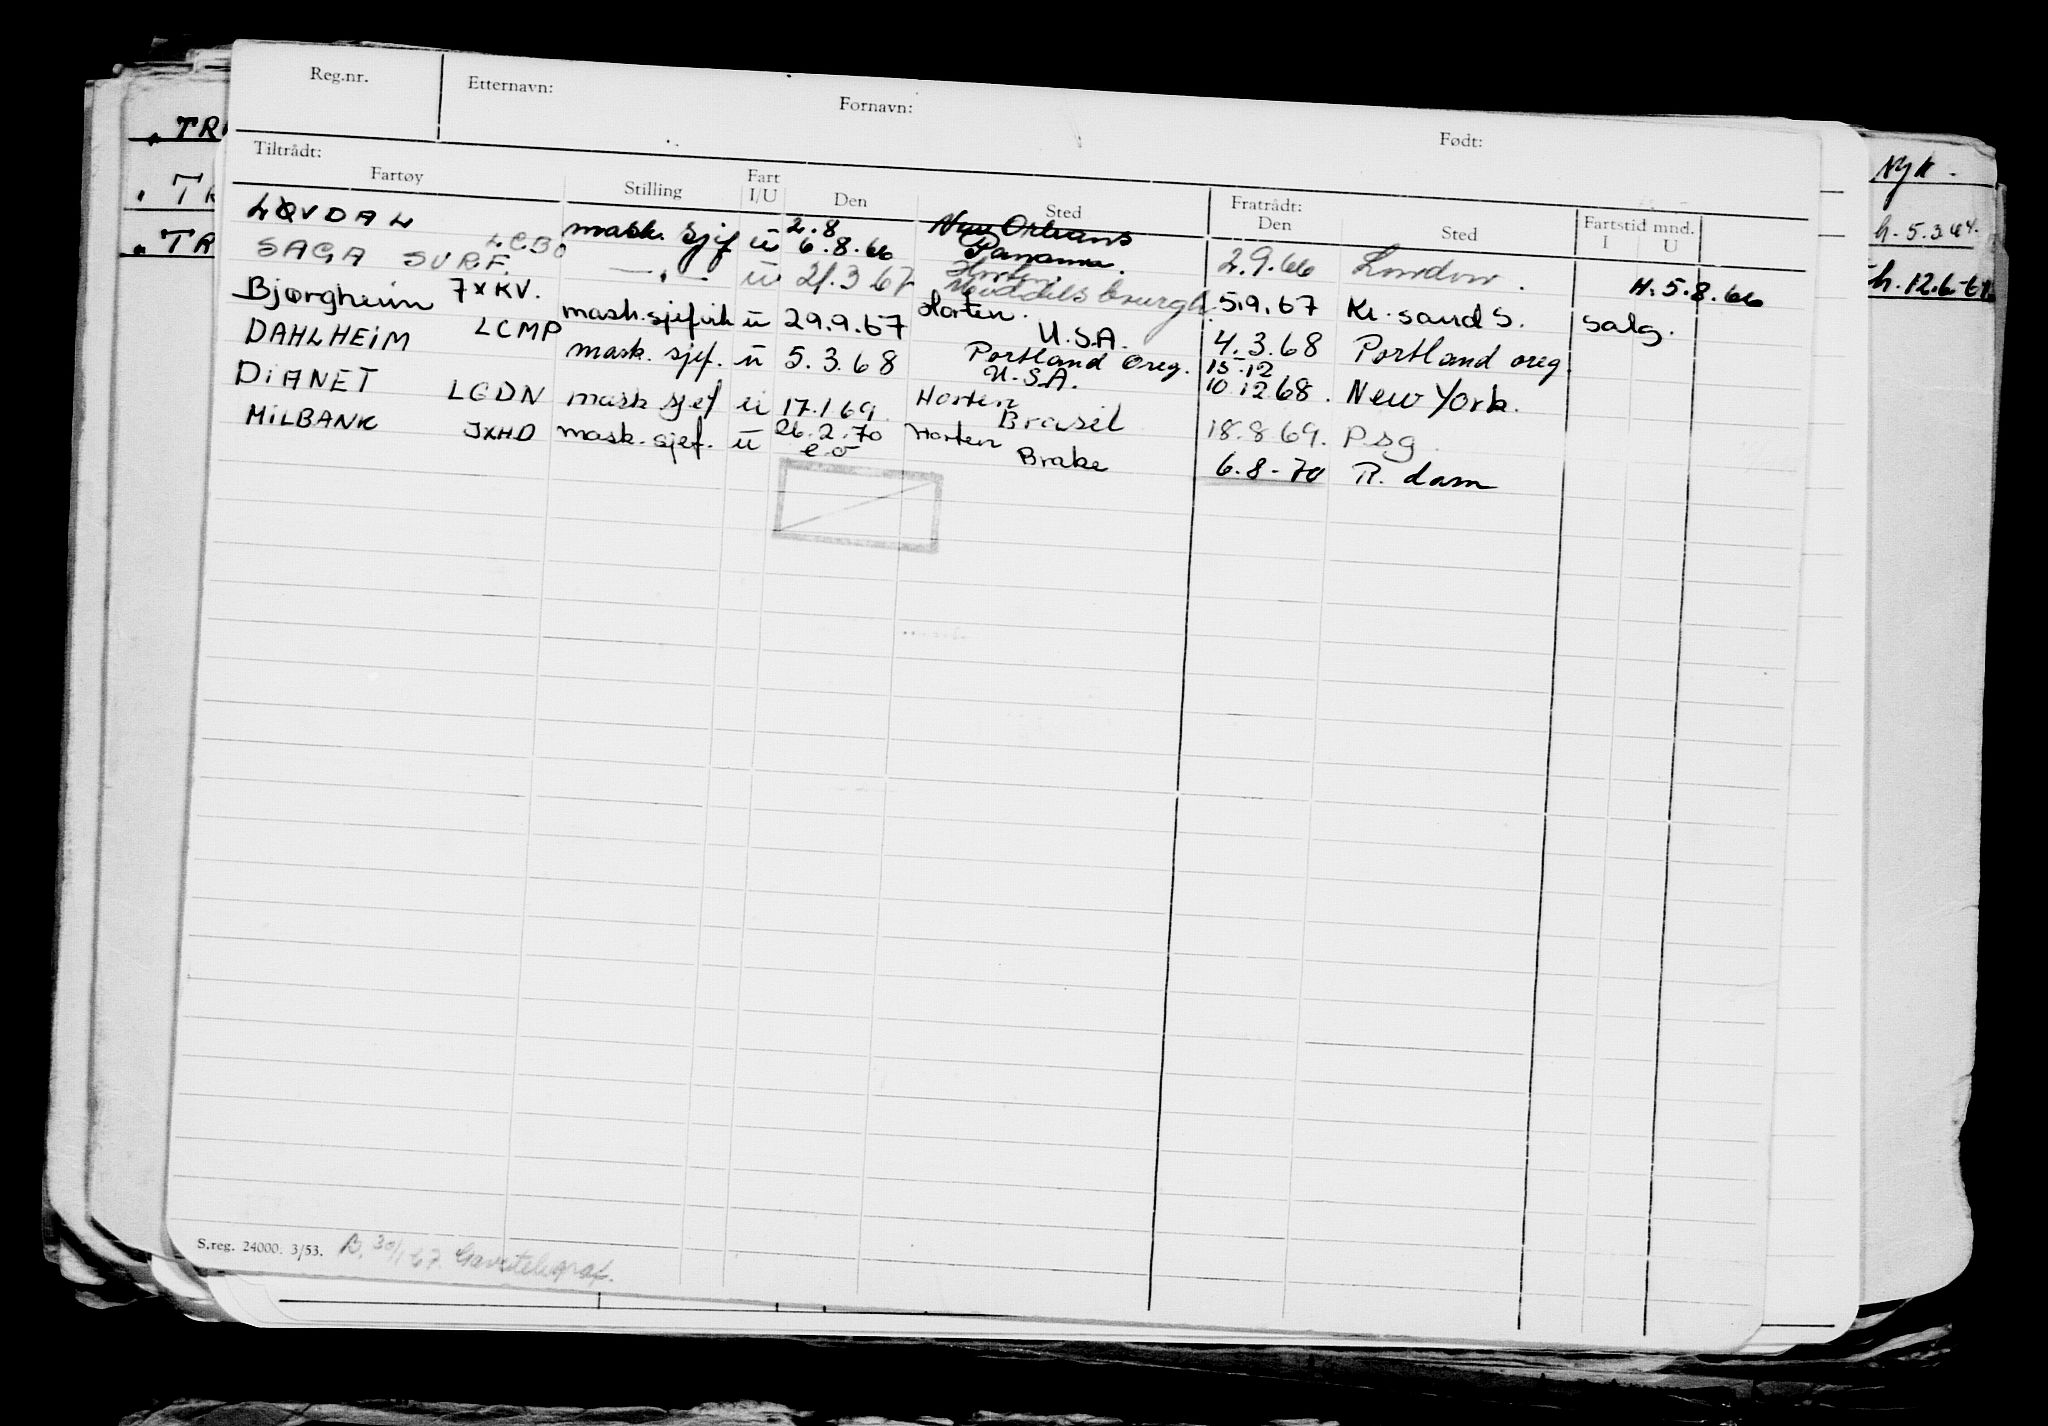 Reg.nr. Etternavn: Fornavn: Født:
Tiltrådt: Fratrådt:
Fartøy Stilling Fart I/U Den Sted Den Sted Fartstid mnd. I U
LØVDAL mask. sjef u 2.8 6.8.66 New Orleans Panama. 2.9.66 London. H. 5.8.66
SAGA SURF. LCBO — " — u 21.3 67 Horten Middelsburgh 5.9.67 Kr. sand S. salg.
Bjørgheim 7XKV. mask.sjefvik u 29.9.67 Horten. U.S.A. 4.3.68 Portland oreg.
DAHLHEIM LCMP mask. sjef. u 5.3.68 Portland Oreg. U.S.A. 15.12 10.12.68. New York.
DiANET LGDN mask sjef u 17.1 69. Horten Brasil 18.8 69. Psg
MiLBANK JXHD mask. sjef. u 26.2.70 e.o Horten Brake 6.8-70 R. dam
S.reg. 24000. 3/53. B. 30/1-67. Gavetelegraf.
. TR
. TR
. TR
NYK.
h. 5.3.64.
h. 12.6-61